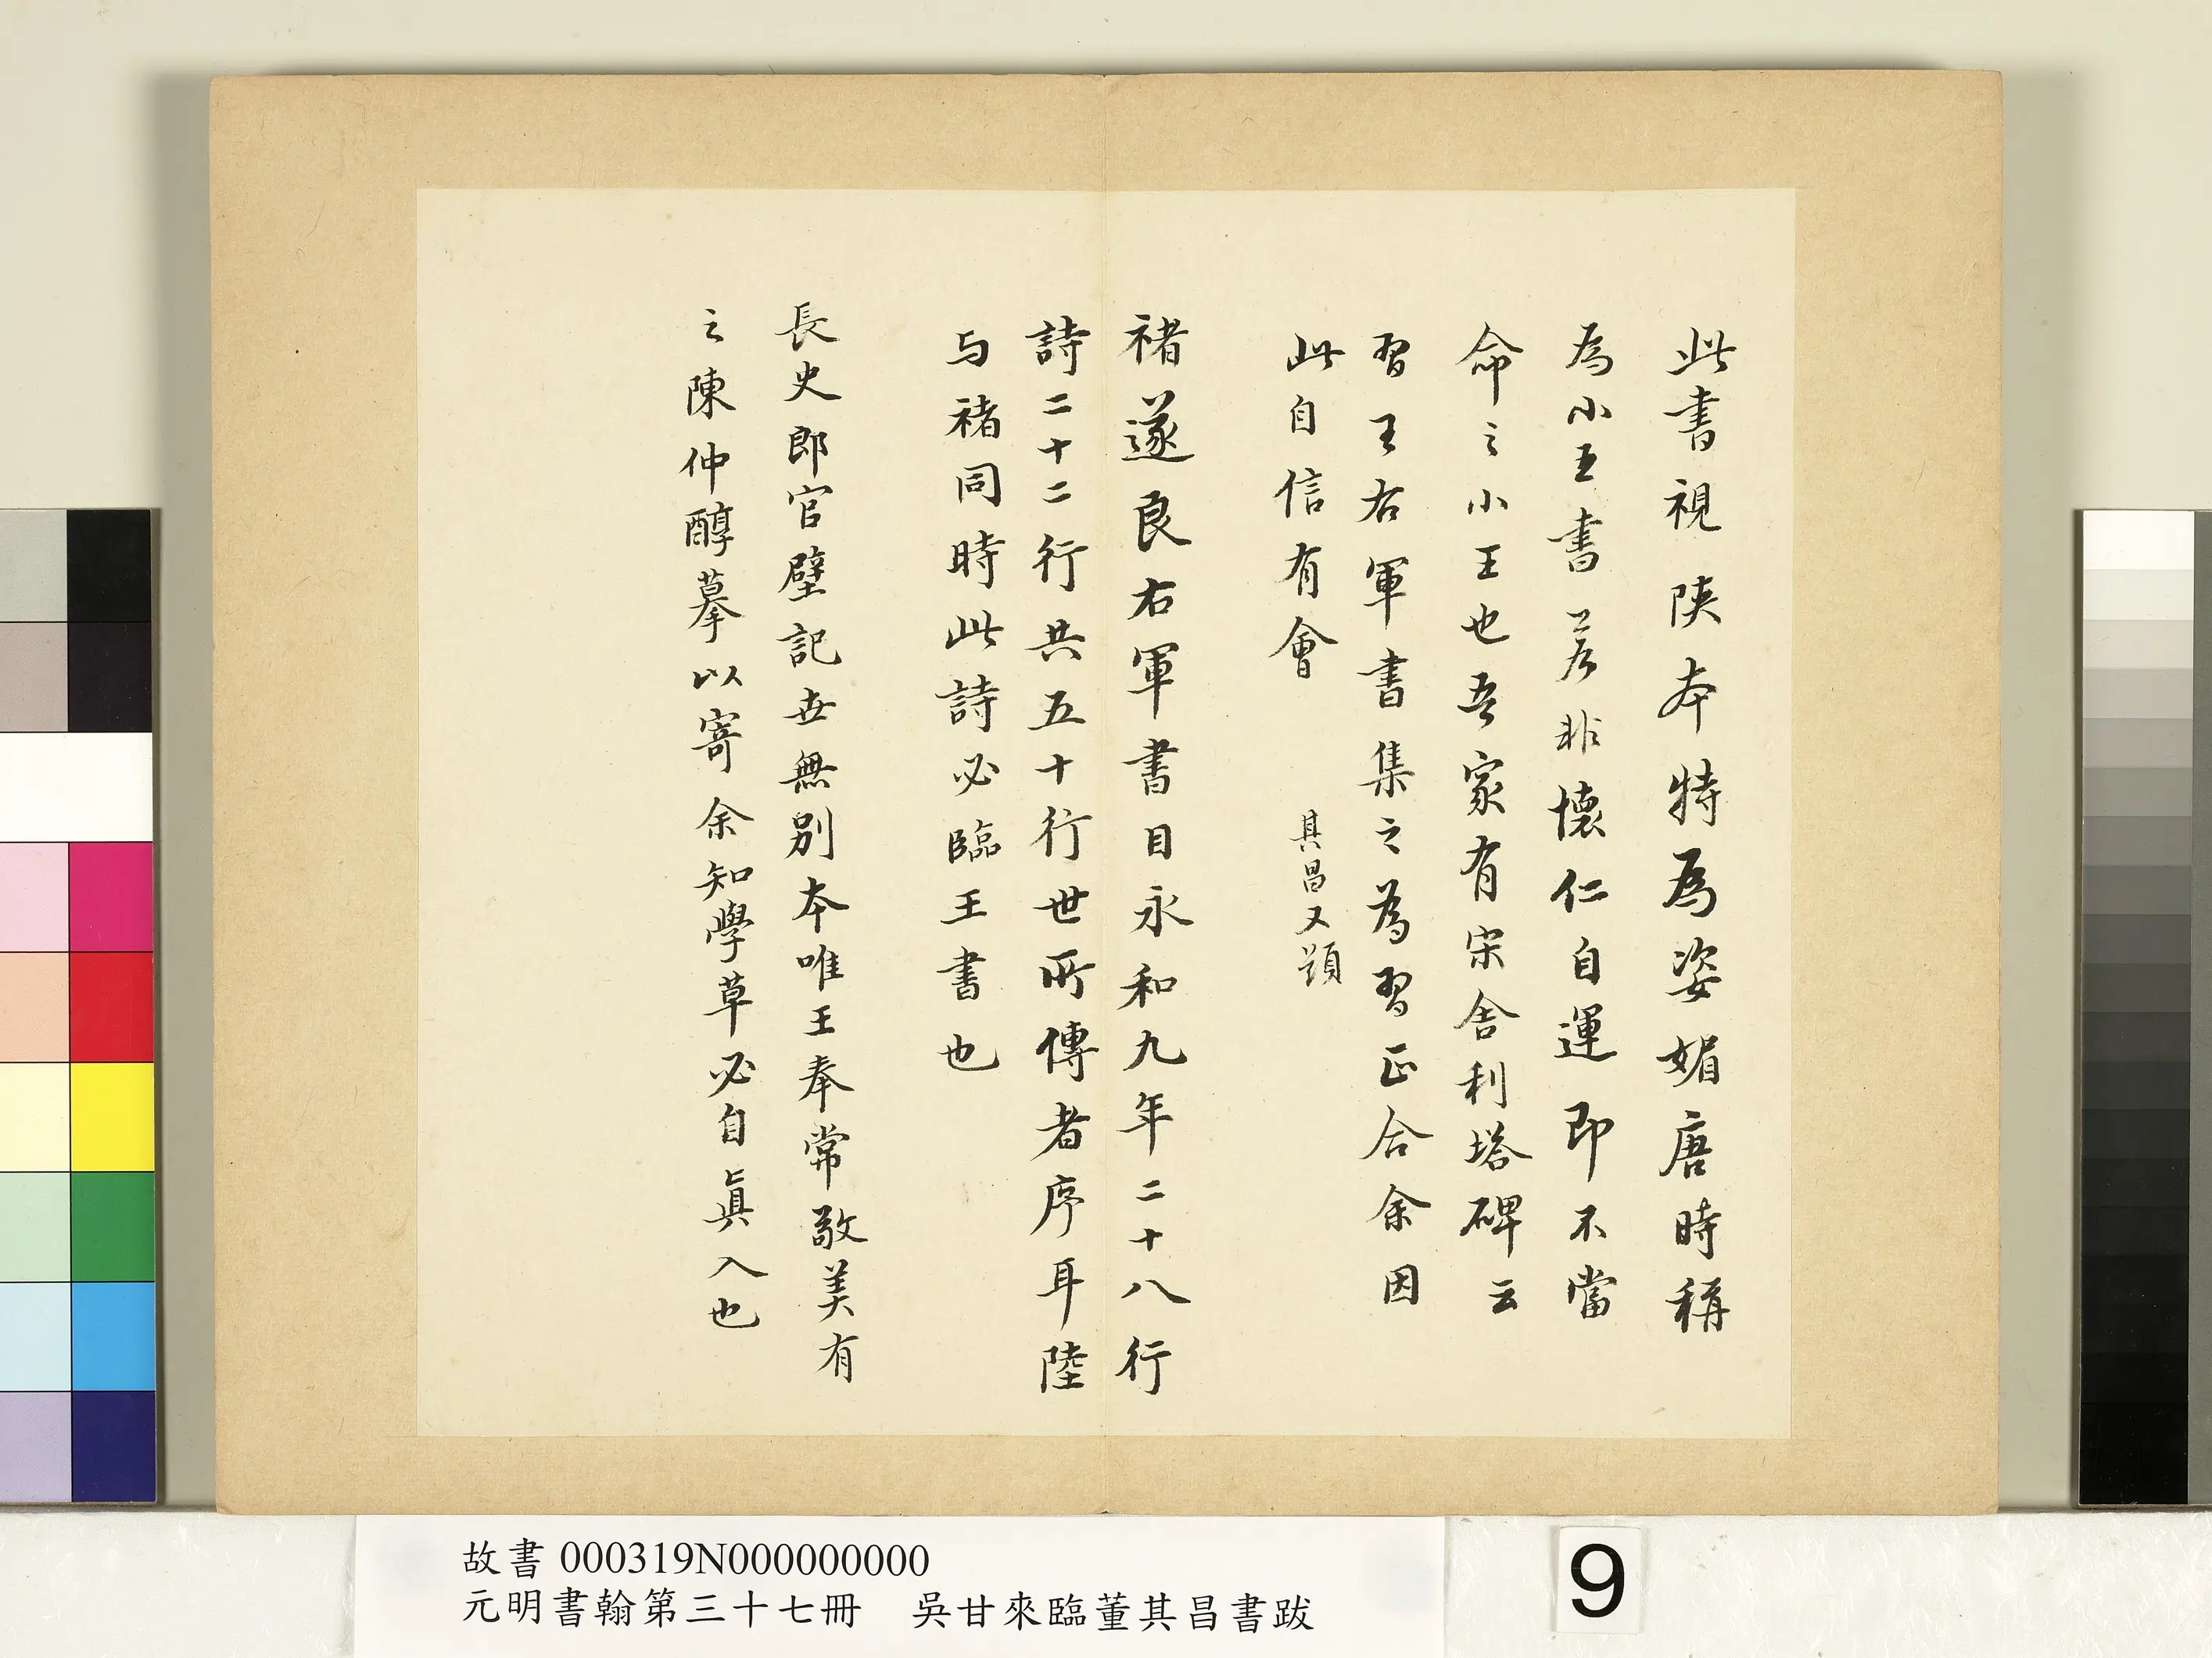 此書視陝本特為姿媚唐時稱
為小王書若非懷仁自運即不當
命之小王也吾家有宋舍利塔碑云
習王右軍書集之為習正合余因
此自信有會　其昌又題
褚遂良右軍書目永和九年二十八行
詩二十二行共五十行世所傳者序耳陸
与褚同時此詩必臨王書也
長史郎官壁記世無別本唯王奉常敬美有
之陳仲醇摹以寄余知學草必自眞入也
故書 000319N000000000
元明書翰第三十七冊　吳甘來臨董其昌書跋
9